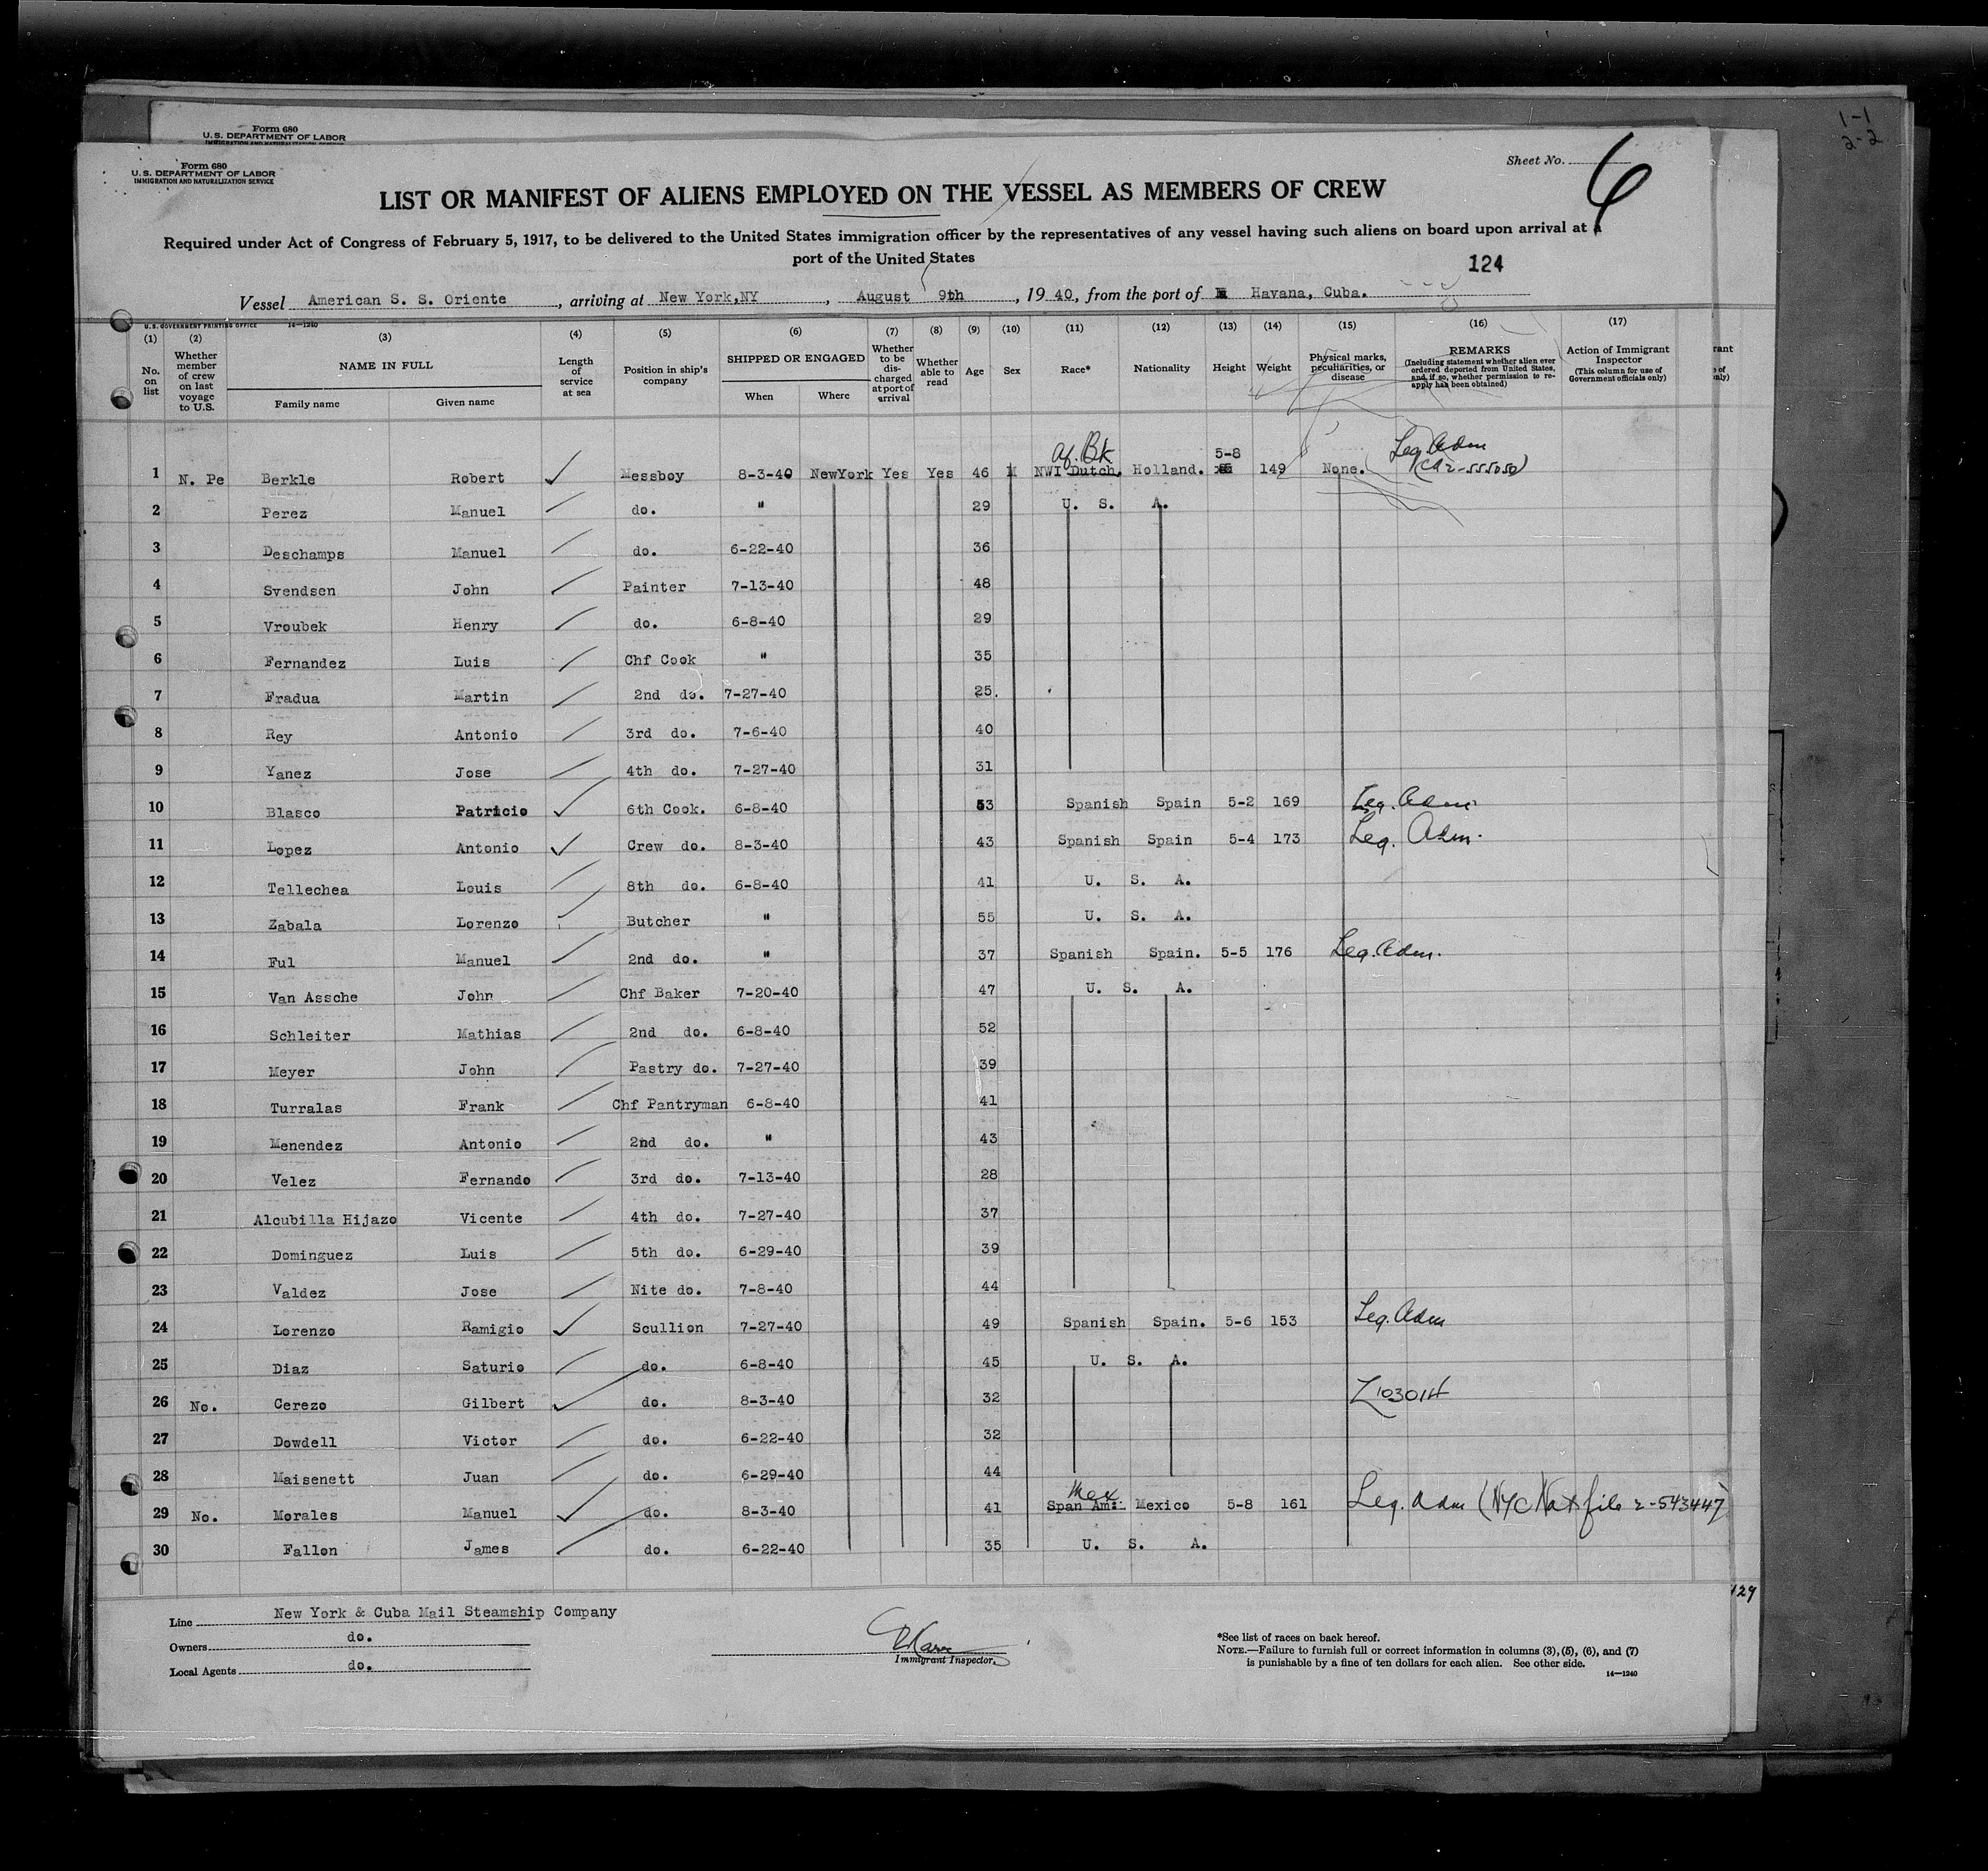 Form 680
U. S. DEPARTMENT OF LABOR
IMMIGRATION AND NATURALIZATION SERVICE
1-1
2-2
Form 680
U. S. DEPARTMENT OF LABOR
IMMIGRATION AND NATURALIZATION SERVICE
Sheet No. 6
LIST OR MANIFEST OF ALIENS EMPLOYED ON THE VESSEL AS MEMBERS OF CREW
Required under Act of Congress of February 5, 1917, to be delivered to the United States immigration officer by the representatives of any vessel having such aliens on board upon arrival at a
port of the United States
124
Vessel American S. S. Oriente, arriving at New York,NY, August 9th, 1940, from the port of Havana, Cuba.
U. S. GOVERNMENT PRINTING OFFICE 14—1240
(1) (2) (3) (4) (5) (6) (7) (8) (9) (10) (11) (12) (13) (14) (15) (16) (17)
No. on list
Whether member of crew on last voyage to U.S.
NAME IN FULL
Family name Given name
Length of service at sea
Position in ship's company
SHIPPED OR ENGAGED
When Where
Whether to be discharged at port of arrival
Whether able to read
Age
Sex
Race*
Nationality
Height
Weight
Physical marks, peculiarities, or disease
REMARKS
(Including statement whether alien ever ordered deported from United States, and if so, whether permission to reapply has been obtained)
Action of Immigrant Inspector
(This column for use of Government officials only)
af. Bk 5-8 Leg Adm
1 N. Pe Berkle Robert Messboy 8-3-40 NewYork Yes Yes 46 M NWI Dutch. Holland. 149 None. (CR 2-555050)
2 Perez Manuel do. " 29 U. S. A.
3 Deschamps Manuel do. 6-22-40 36
4 Svendsen John Painter 7-13-40 48
5 Vroubek Henry do. 6-8-40 29
6 Fernandez Luis Chf Cook " 35
7 Fradua Martin 2nd do. 7-27-40 25.
8 Rey Antonio 3rd do. 7-6-40 40
9 Yanez Jose 4th do. 7-27-40 31
10 Blasco Patricio 6th Cook. 6-8-40 53 Spanish Spain 5-2 169 Leg. Adm.
11 Lopez Antonio Crew do. 8-3-40 43 Spanish Spain 5-4 173 Leg. Adm.
12 Tellechea Louis 8th do. 6-8-40 41 U. S. A.
13 Zabala Lorenzo Butcher " 55 U. S. A.
14 Ful Manuel 2nd do. " 37 Spanish Spain. 5-5 176 Leg. Adm.
15 Van Assche John Chf Baker 7-20-40 47 U. S. A.
16 Schleiter Mathias 2nd do. 6-8-40 52
17 Meyer John Pastry do. 7-27-40 39
18 Turralas Frank Chf Pantryman 6-8-40 41
19 Menendez Antonio 2nd do. " 43
20 Velez Fernando 3rd do. 7-13-40 28
21 Alcubilla Hijazo Vicente 4th do. 7-27-40 37
22 Dominguez Luis 5th do. 6-29-40 39
23 Valdez Jose Nite do. 7-8-40 44
24 Lorenzo Ramigio Scullion 7-27-40 49 Spanish Spain. 5-6 153 Leg. Adm
25 Diaz Saturio do. 6-8-40 45 U. S. A.
26 No. Cerezo Gilbert do. 8-3-40 32 Z103014
27 Dowdell Victor do. 6-22-40 32
28 Maisenett Juan do. 6-29-40 44
Mex
29 No. Morales Manuel do. 8-3-40 41 Span Am: Mexico 5-8 161 Leg. Adm (NYC Nat file 2-543447)
30 Fallon James do. 6-22-40 35 U. S. A.
129
Line New York & Cuba Mail Steamship Company
Owners do.
Local Agents do.
Immigrant Inspector.
*See list of races on back hereof.
NOTE.—Failure to furnish full or correct information in columns (3), (5), (6), and (7)
is punishable by a fine of ten dollars for each alien. See other side.
14—1240